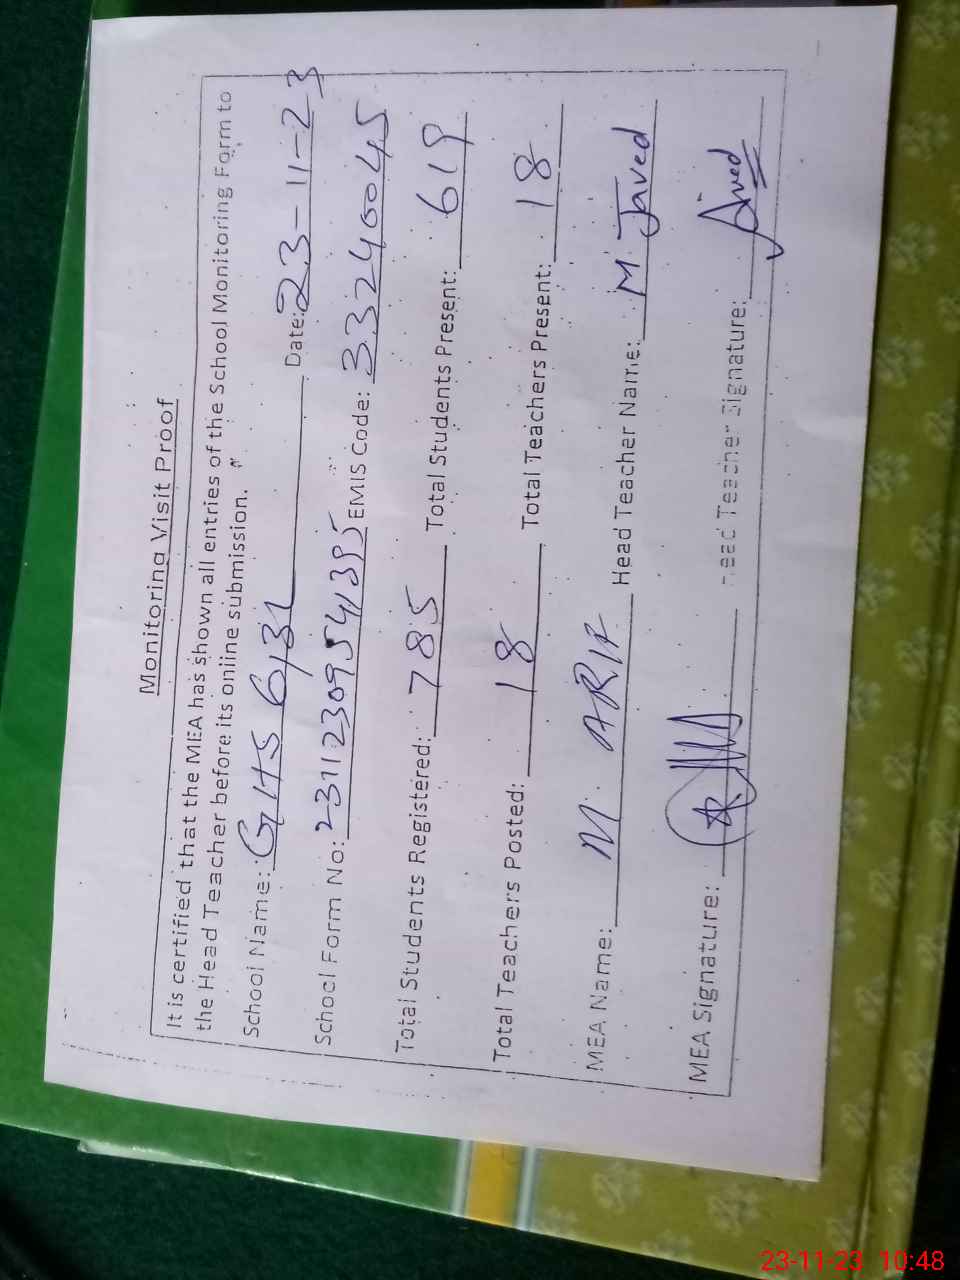 Monitoring Visit Proof
It is certified that the MEA has shown all entries of the School Monitoring Form to
the Head Teacher before its online submission.
School Name: GHS 6/3L Date: 23-11-23
School Form No: 23112309541395 EMIS Code: 33240045
Total Students Registered: 785 Total Students Present: 619
Total Teachers Posted: 18 Total Teachers Present: 18
MEA Name: M. ARIF Head Teacher Name: M. Javed
MEA Signature: Head Teacher Signature: Javed
23-11-23 10:48